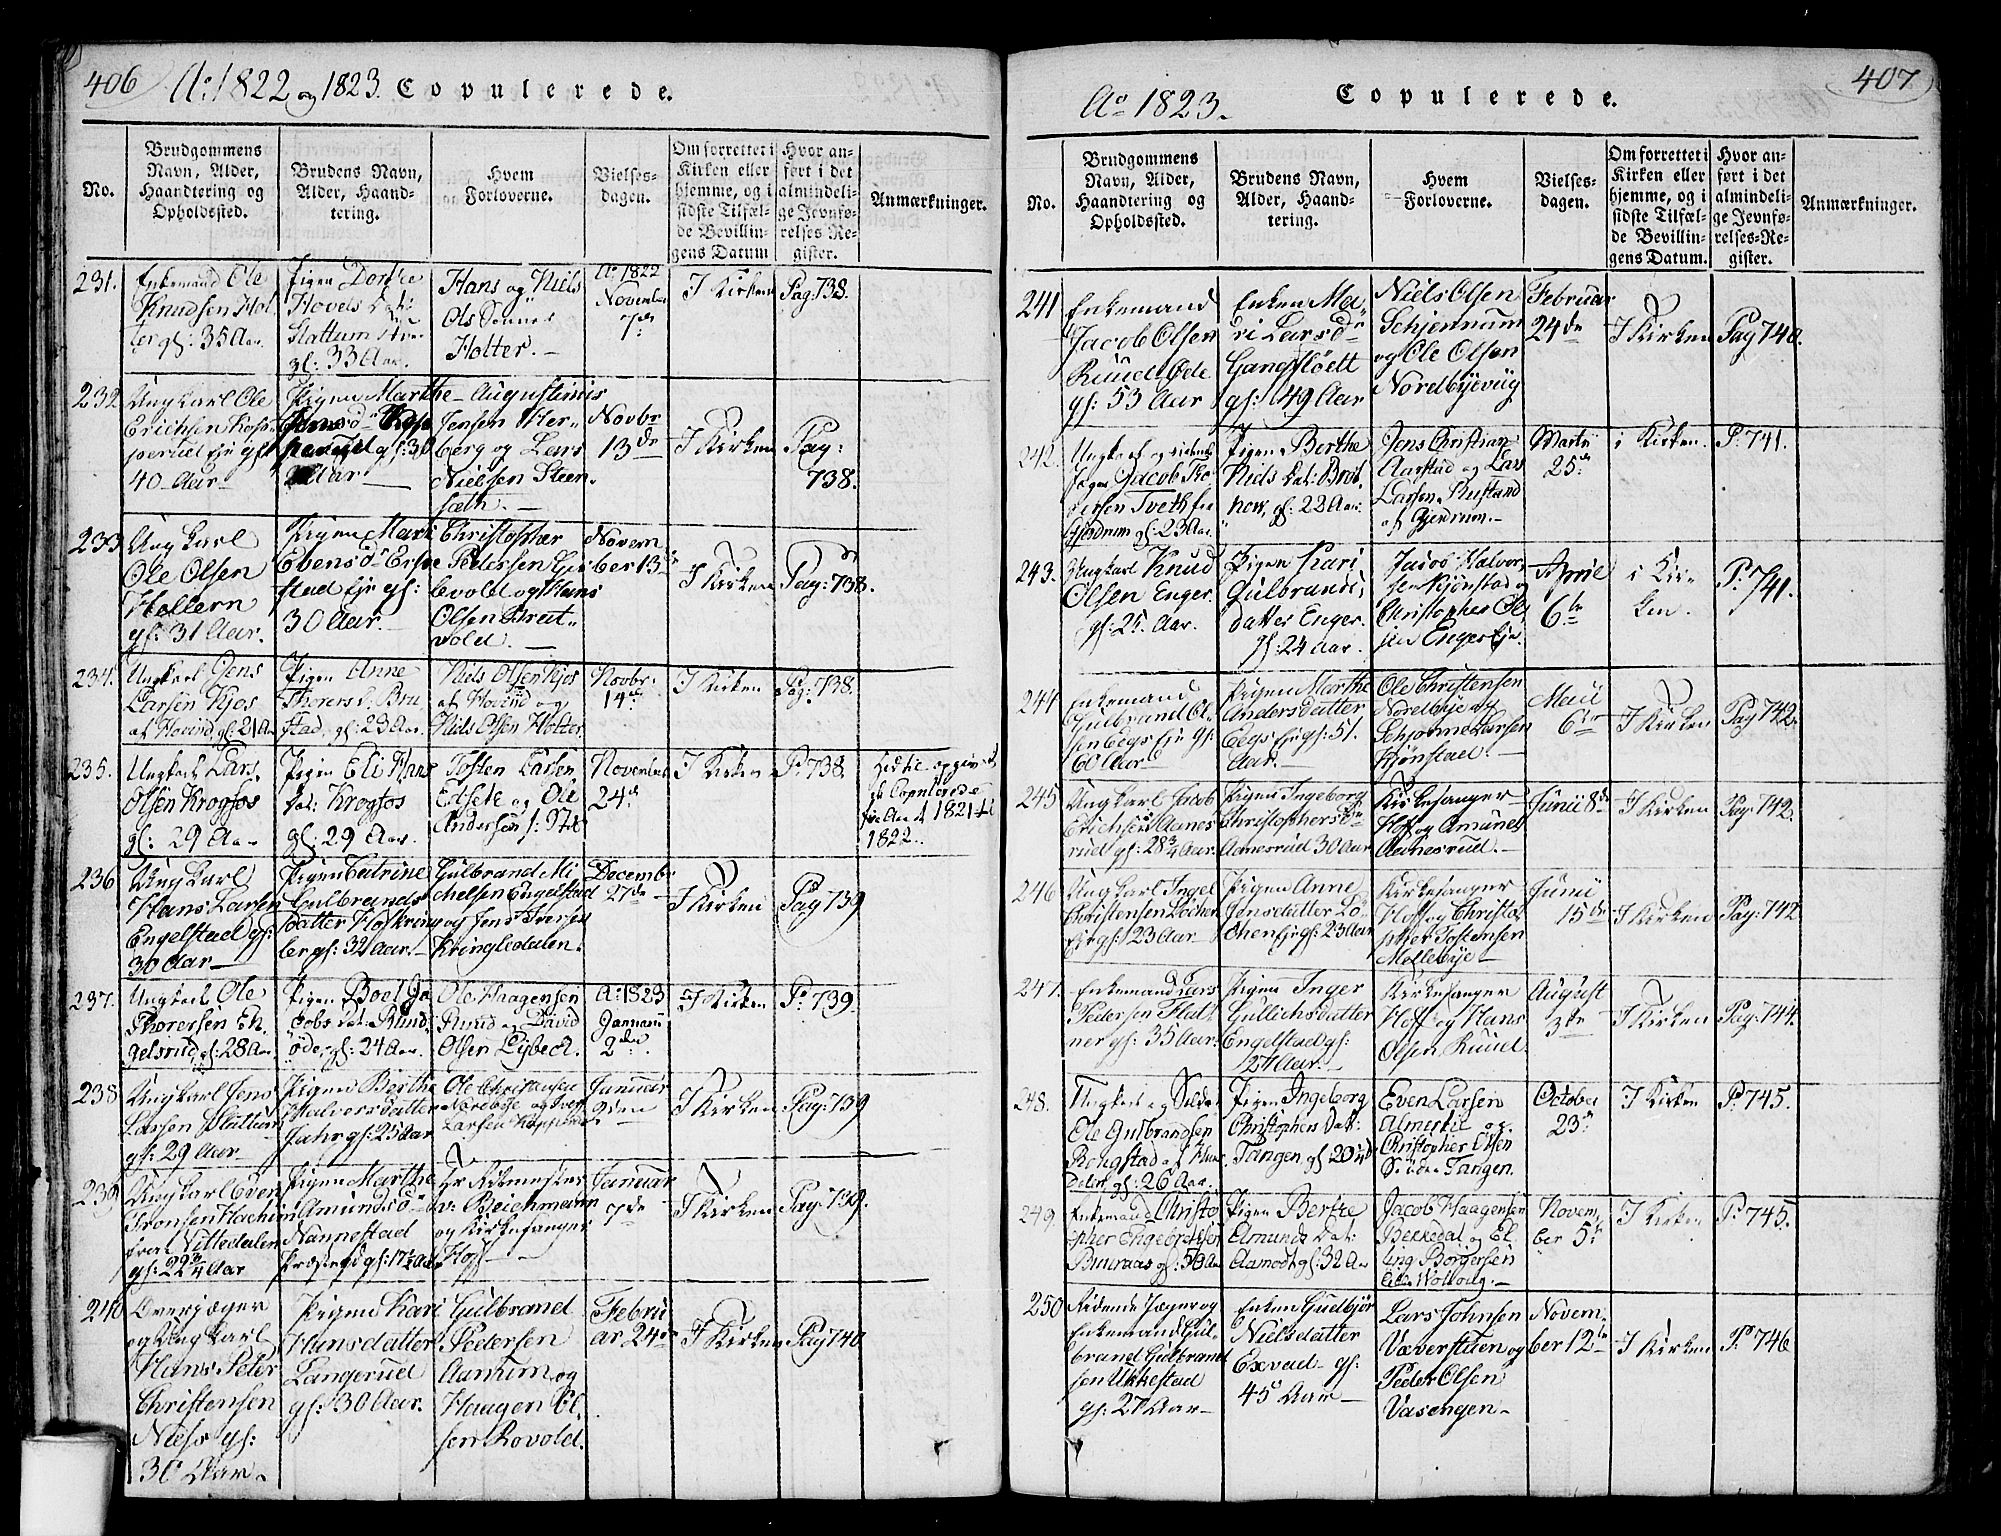 406
Ao: 1822 og 1823. Copulerede.
No.
Brudgommens
Navn, Alder,
Haandtering og
Opholdssted.
Brudens Navn,
Alder, Haand-
tering.
Hvem
Forloverne.
Vielses-
dagen.
Om forrettet i
Kirken eller
hjemme, og i
sidste Tilfæl-
de Bevillin-
gens Datum
Hvor an-
ført i det
almindeli-
ge Jevnfø-
relses-Re-
gister.
Anmærkninger.
231.
Enkemand Ole
Knudsen Hol
ter gl: 35 Aar.
Pigen Dorthe
Hovels Dat:
Slattum
gl: 33 Aar.
Hans og Niels
Ols Sønner
Holter.
Ao: 1822
November
7de
I Kirken
Pag: 738.
232
Ungkarl Ole
Erichsen
40 Aar
Pigen Marthe
gl: 30
Aar
Augustinus
Jensen Her-
berg og Lars
Nielsen Steen
sæth.
Novbr
13de
I Kirken
Pag:
738.
233
Ungkarl
Ole Olsen
Hollern
gl: 31 Aar.
Pigen Mari
Evensd
stad Eje gl:
30 Aar.
Christopher
Pedersen
og Hans
Olsen Breit-
vold.
Novem
ber 13de
I Kirken
Pag: 738.
234.
Ungkarl Jens
Larsen Kjos
af Hovind, gl: 21 Aar
Pigen Anne
Thorers D: Bru
stad, gl: 23 Aar.
Niels Olsen Kjos
af Hovind og
Niels Olsen Holter.
Novbr.
14de
I Kirken
Pag: 738.
235.
Ungkarl Lars
Olsen Krogfos
gl: 29 Aar
Pigen Eli Hans
Dat: Krogfos
gl: 29 Aar.
Tosten Larsen
og Ole
Andersen
November
24de
I Kirken
P: 738.
Hertil opgivet
Copulerede
fra 1821 til
1822.
236
Ungkarl
Hans Larsen
Engelstad gl:
30 Aar
Pigen Catrine
Gulbrands
datter
gl: 32 Aar.
Gulbrand Mi
chelsen Engelstad
og Jens Iversen
Kringledalen.
Decembr
27de
I Kirken
Pag 739
237.
Ungkarl Ole
Thorersen En
gelsrud, gl: 28 Aar
Pigen Boel Ja
cobs Dat: Ruud
øde, gl: 24 Aar.
Ole Haagensen
Ruud og David
Olsen Lybeck.
Ao: 1823
Januarii
2den
I Kirken
P: 739.
238
Ungkarl Jens
Larsen Slattum
gl: 29 Aar
Pigen Berthe
Halvorsdatter
Jahr gl: 25 Aar
Ole Christensen
Nordbye og Iver
Larsen
Januar
2den
I Kirken
Pag: 739
239
Ungkarl Even
Tronsen
fra Nittedalen
gl: 22 3/4 Aar
Pigen Marthe
Amundsd
Nannestad
Præstegd gl: 17 1/2 Aar
Hr Ritmester
v: Beichmann
og Kirkesanger
Hoff
Januar
7de
I Kirken
Pag: 739.
240
Overjæger
og Ungkarl
Hans Peter
Christensen
Næss gl:
30 Aar.
Pigen Kari
Hansdatter
Langerud
gl: 30 Aar.
Gulbrand
Pedersen
Aamum og
Haagen El
sen Rovold.
Febru
ar 24de
I Kirken
Pag 740
407
Ao 1823. Copulerede.
No.
Brudgommens
Navn, Alder,
Haandtering og
Opholdssted.
Brudens Navn,
Alder, Haand-
tering.
Hvem
Forloverne.
Vielses-
dagen.
Om forrettet i
Kirken eller
hjemme, og i
sidste Tilfæl-
de Bevillin-
gens Datum.
Hvor an-
ført i det
almindeli-
ge Jevnfø-
relses-Re-
gister.
Anmærkninger.
241
Enkemand
Jacob Olsen
Ruud Øde
gl: 53 Aar
Enken Ma-
ri Larsd
gl: 49 Aar
Niels Olsen
Schjennum
og Ole Olsen
Nordbyevug
Februar
24de
I Kirken
Pag 740.
242.
Ungkarl og ridende
Jæger Jacob
Tveth fra
Gjerdrum gl: 23 Aar
Pigen Berthe
Niels Dat:
gl: 22 Aar.
Jens Christian
Aarstad og Lars
Larsen Rustand
af Gjerdrum.
Martii
25de
i Kirken.
P: 741.
243.
Ungkarl Knud
Olsen Enger.
gl: 25 Aar.
Pigen Kari
Gulbrands
datter Enger.
gl: 24 Aar.
Jacob Halvor
sen Kjønstad og
Christopher Ol
sen Enger Eje.
Aprile
6te
i Kir-
ken.
P: 741.
244
Enkemand
Gulbrand O-
sen Eegs Eje gl:
60 Aar
Pigen Marthe
Andersdatter
Eegs Eje gl: 51.
Aar.
Ole Christensen
Nordbye og
Larsen
Kjønstad.
Maii
6te
I Kirken
Pag 742.
245
Ungkarl Jacob
Erichsen Aanes
rud gl: 28 3/4 Aar.
Pigen Ingeborg
Christophersd
Aanesrud 30 Aar
Kirkesanger
Hoff og Amund
Aanesrud.
Junii 8de
I Kirken
Pag: 742.
246
Ungkarl Ingel
Christensen Løchen
Eje gl: 23 Aar
Pigen Anne
Jensdatter Lø-
chen Eje gl: 23 Aar
Kirkesanger
Hoff og Christo
pher Tostensen
Mollebye
Junii
15de
I Kirken
Pag: 742
247.
Enkemand Lars
Pedersen Flat-
ner gl: 35 Aar.
Pigen Inger
Gullichsdatter
Engelstad gl:
24 Aar.
Kirkesanger
Hoff og Hans
Olsen Ruud.
August
3de
I Kirken
Pag: 744.
248.
Ungkarl og Soldat
Ole Gulbrandsen
Rongstad af
gl: 26 Aar.
Pigen Ingeborg
Christophers Dat:
Tangen gl 20
Even Larsen
og
Christopher Olsen
Søndre Tangen.
October
23de
I Kirken
P: 745.
249.
Enkemand Christo
pher Engebretsen
Buraas gl: 50 Aar
Pigen Berthe
Amunds Dat:
Aamodt, gl: 32 Aar
Jacob Haagensen
Bekkedal og El
ling Børgersen
Novem
ber 5te
I Kirken
P: 745.
250
Ridende Jæger og
Enkemand Gul-
brand Gulbrand
sen Ukkestad
gl: 27 Aar
Enken Gudbjør
Nielsdatter
Exvad gl:
45 Aar
Lars Johnsen
Væverstuen og
Peder Olsen
Vasengen
Novem-
ber 12te
I Kirken
P: 746